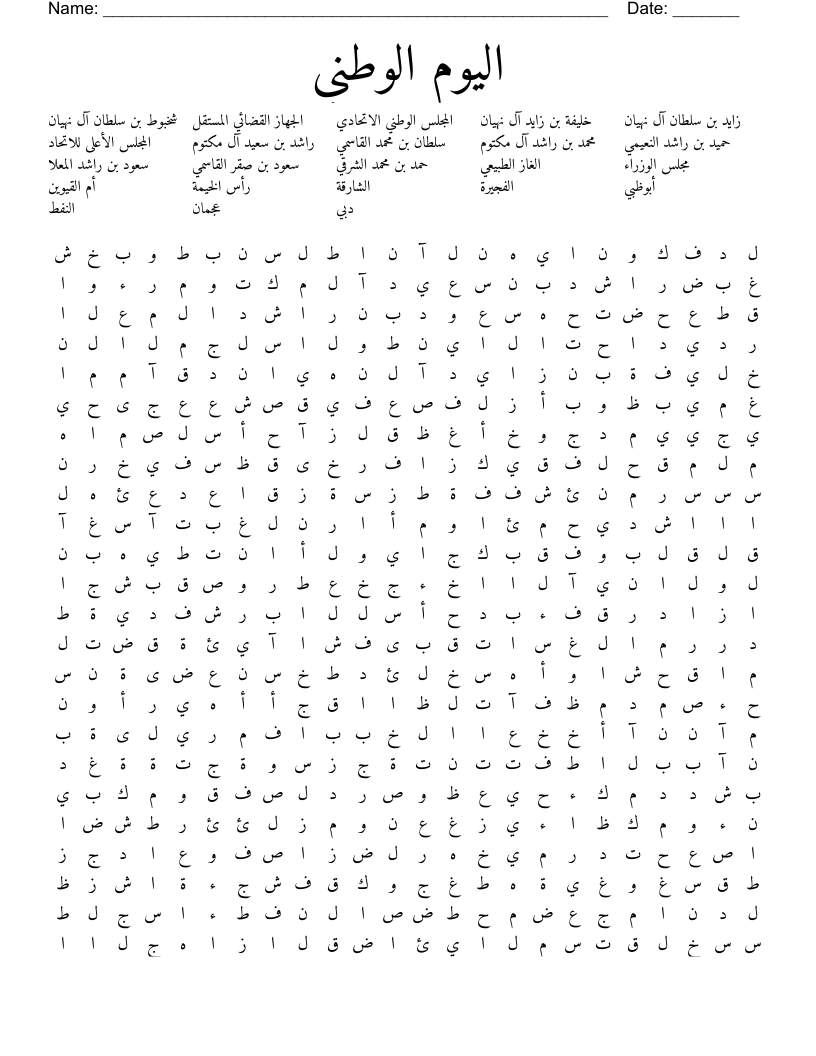 Name: ______________________________________________________ Date: _______
اليوم الوطني
زايد بن سلطان آل نهيان خليفة بن زايد آل نهيان المجلس الوطني الاتحادي الجهاز القضائي المستقل شخبوط بن سلطان آل نهيان
حميد بن راشد النعيمي محمد بن راشد آل مكتوم سلطان بن محمد القاسمي راشد بن سعيد آل مكتوم المجلس الأعلى للاتحاد
مجلس الوزراء الغاز الطبيعي حمد بن محمد الشرقي سعود بن صقر القاسمي سعود بن راشد المعلا
أبوظبي الفجيرة الشارقة رأس الخيمة أم القيوين
دبي عجمان النفط
ل د ف ك و ن ا ي ه ن ل آ ن ا ط ل س ن ب ط و ب خ ش
غ ب ض ر ا ش د ب ن س ع ي د آ ل م ك ت و م ر ء و ا
ق ط ع ح ض ت ح ه س ع و د ب ن ر ا ش د ا ل م ع ل ا
ر د ي د ا ح ت ا ل ا ي ن ط و ل ا س ل ج م ل ا ل ن
خ ل ي ف ة ب ن ز ا ي د آ ل ن ه ي ا ن د ق آ م م ا
غ م ي ب ظ و ب أ ز ل ف ص ع ف ي ق ص ش ع ع ج ى ح ي
ي ج ي ي م د ج و خ أ غ ظ ق ل ز آ ح أ س ل ص م ا ه
م ل م ق ح ل ف ق ي ك ز ا ف ر خ ى ق ظ س ف ي خ ر ن
س س س ر م ن ئ ش ف ف ة ط ز س ة ز ق ا ع د ع ئ ه ل
ا ا ا ش د ي ح م ئ ا و م أ ا ر ن ل غ ب ت آ س غ آ
ق ل ق ل ب و ف ق ب ك ج ا ي و ل أ ا ن ت ط ي ه ب ن
ل و ل ا ن ي آ ل ا ا خ ء ج خ ع ط ر و ص ق ب ش ج ا
ا ز ا د ر ق ف ء ب د ح أ س ل ل ا ب ر ش ف د ي ة ط
د ر ر م ا ل غ س ا ت ق ب ى ف ش ا آ ي ئ ة ق ض ت ل
م ا ق ح ش ا و أ ه س خ ل ئ د ط خ س ن ع ض ى ة ن س
ح ء ص م د م ظ ف آ ت ل ظ ا ا ق ج أ أ ه ي ر أ و ن
م آ ن ن آ أ خ خ ع ا ا ل خ ب ب ا ف م ر ي ل ى ة ب
ن آ ب ب ل ا ط ف ت ت ن ت ة ج ز س و ة ج ت ة ة غ د
ب ش د د م ك ء ح ي ع ظ و ص ر د ل ص ف ق و م ك ب ي
ن ء و م ك ظ ا ء ي ز غ ع ن و م ز ل ئ ئ ر ط ش ض ا
ا ص ع ح ت د ر م ي خ ه ر ل ض ز ا ص ف و ع ا د ج ز
ط ق س غ و غ ي ة ه ط غ ج و ك ق ف ش ج ء ة ا ش ز ظ
ل د ن ا م ج ع ض م ح ط ض ص ا ل ن ف ط ء ا س ج ل ط
س س خ ل ق ت س م ل ا ي ئ ا ض ق ل ا ز ا ه ج ل ا ا